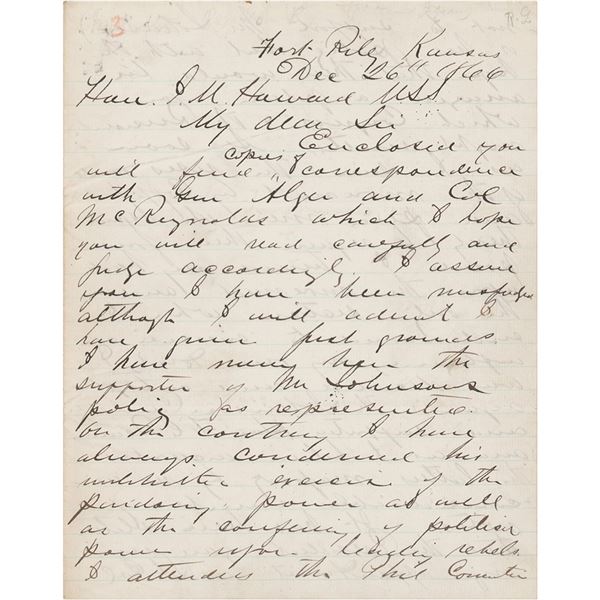 3
Fort Riley Kansas
Dec 26th 1866
Hon. J. M. Howard USS
My dear Sir
Enclosed you
will find copies of correspondence
with Gen Alger and Col
McReynolds which I hope
you will read carefully and
judge accordingly. I assure
you I have been misjudged
although I will admit I
have given just grounds.
I have never been the
supporter of Mr Johnsons
policy as represented.
On the contrary I have
always condemned his
exercise of the
pardoning power as well
as the confering of political
power upon leading rebels.
I attended the Phil